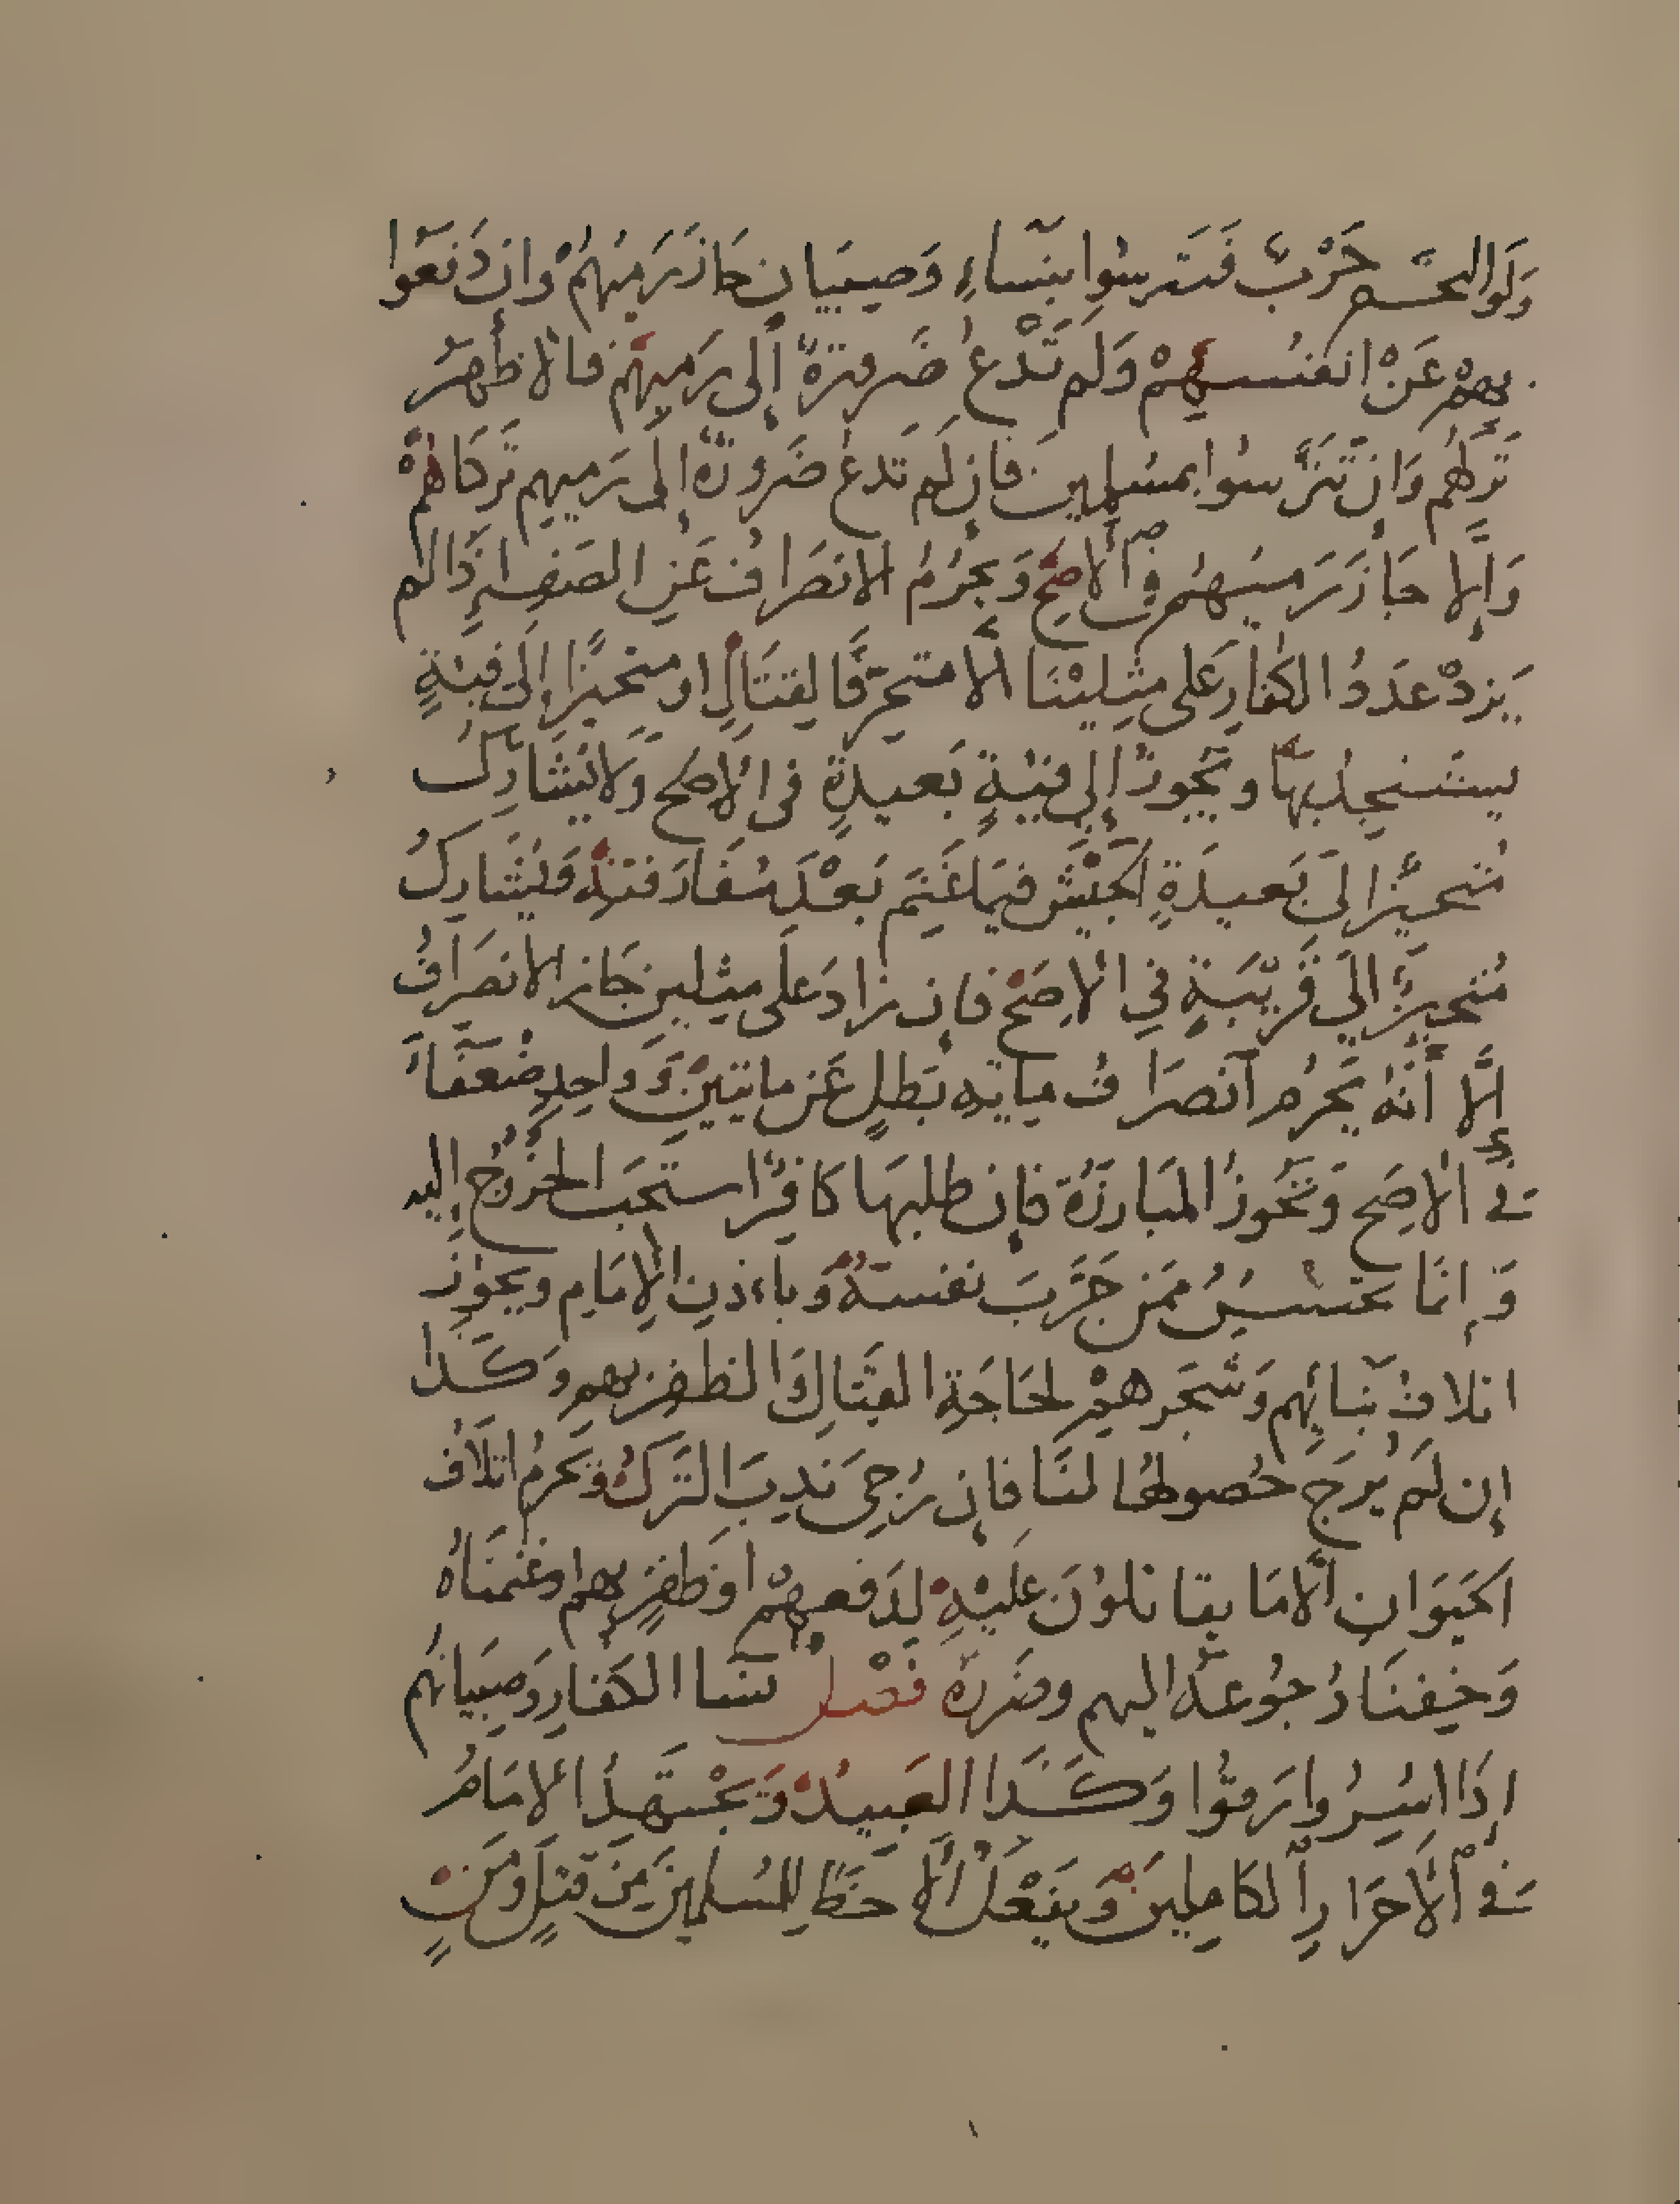 وَلَو التحَم حَرْبٌ فَتَترسُوا بنِسَاءٍ وَصبيَان جَازَ رَميُهُمْ وان دَفعَوا
بهمْ عَنْ انفُسهِمْ وَلم تَدْعُ ضَرورَةٌ إلى رَميهِمْ فالأظهَرُ
تَركهُم وَانْ تتَرَّسُوا بمسُلمِينَ فان لَم تَدعُ ضَرُورَةٌ إلى رَميهِم تَركنَاهُمْ
وَإلا جَازَ رَميُهُم في الأصَحِّ وَيَحْرُمُ الانصَرَاف عَنِ الصَفِ إذَا لم
يَزدْ عَدَدُ الكفارِ عَلى مثِليْنَا الا متحَرّفًا لقتَالٍ او متحَيّزًا إلَى فِئةٍ
يستَنجِدُ بهَا ويَجُوزُ إلى فئةٍ بَعيدَةٍ في الأصح وَلا يُشَارِكُ
مُتحيّزا إلىَ بَعيدَةٍ الجَيْشَ فيمَا غَنِمَ بَعْدَ مُفَارَقتهِ وَيُشَارِكُ
مُتحيِّزٌ إلَي قَريْبَةٍ فِي الأصَحِّ فإن زادَ عَلَى مثلَين جَازَ الانصَرَافُ
إلَّا أنَّهُ يَحْرُمُ انصَرَافُ مِائةِ بَطلٍ عَن مائتينَ وَوَاحِدٍ ضُعَفَاءَ
في الأصَحِ وَتَجُوزُ المُبَارَزَةُ فإن طلبَهَا كافِرٌ استحَبَ الخرُوجُ إليه
وَإنمَا تحسُنُ ممَن جَرَّبَ نفسَهُ وَباءذنِ الإمَامِ ويجُوزُ
اتلافُ بنَائِهِم وَشَجَرهمْ لحَاجَةِ القتَالِ وَالظفِرِ بهم وَكَذا
إن لَمْ يُرجَ حُصولهُا لنَا فان رُجِىَ نَدِبَ التَركُ وَيَحرمُ اتلاَفُ
الحَيَوَانِ إلاَّ مَا يقاتلوُنَ عَليْهِ لدَفعهِمْ اوَ ظفِرٍ بهم اوغنمنَاهُ
وَخِفنَا رُجوُعهُ اليهم وضَررَهُ فَصْل نسَا الكفارِ وَصِبيَانهُم
إذَا اسُِرُوا رَقّوُا وَكَذَا العَبيدُ وَيَجْتَهِدُ الإمَامُ
في الأحَرَارِ الكامِلِينَ وَيَفعْلُ الا حَظَ للمُسلمينَ مِنَ قتلٍ وَمَنٍ